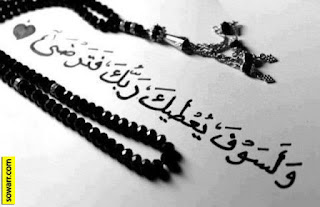 وَلَسَوْفَ يُعْطِيكَ رَبُّكَ فَتَرْضَىٰ
sowarr.com